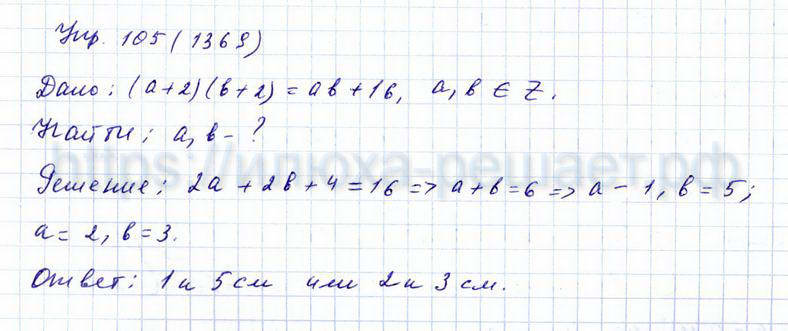 Упр. 105 (1369)
Дано: (a+2)(b+2) = ab+16, a, b ∈ Z.
Найти: a, b - ?
https://илюха-решает.рф
Решение: 2a + 2b + 4 = 16 => a + b = 6 => a - 1, b = 5;
a = 2, b = 3.
Ответ: 1 и 5 см или 2 и 3 см.